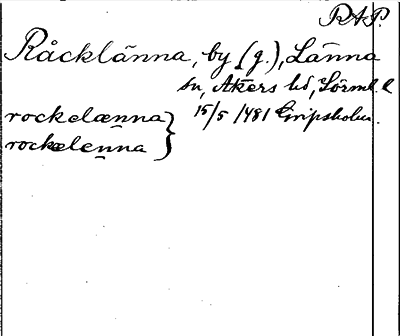 RAP.
Råcklänna, by (g.), Länna
sn, Åkers hd, Sörml. l
rockelænna } 15/5 1481 Gripsholm.
rockelenna